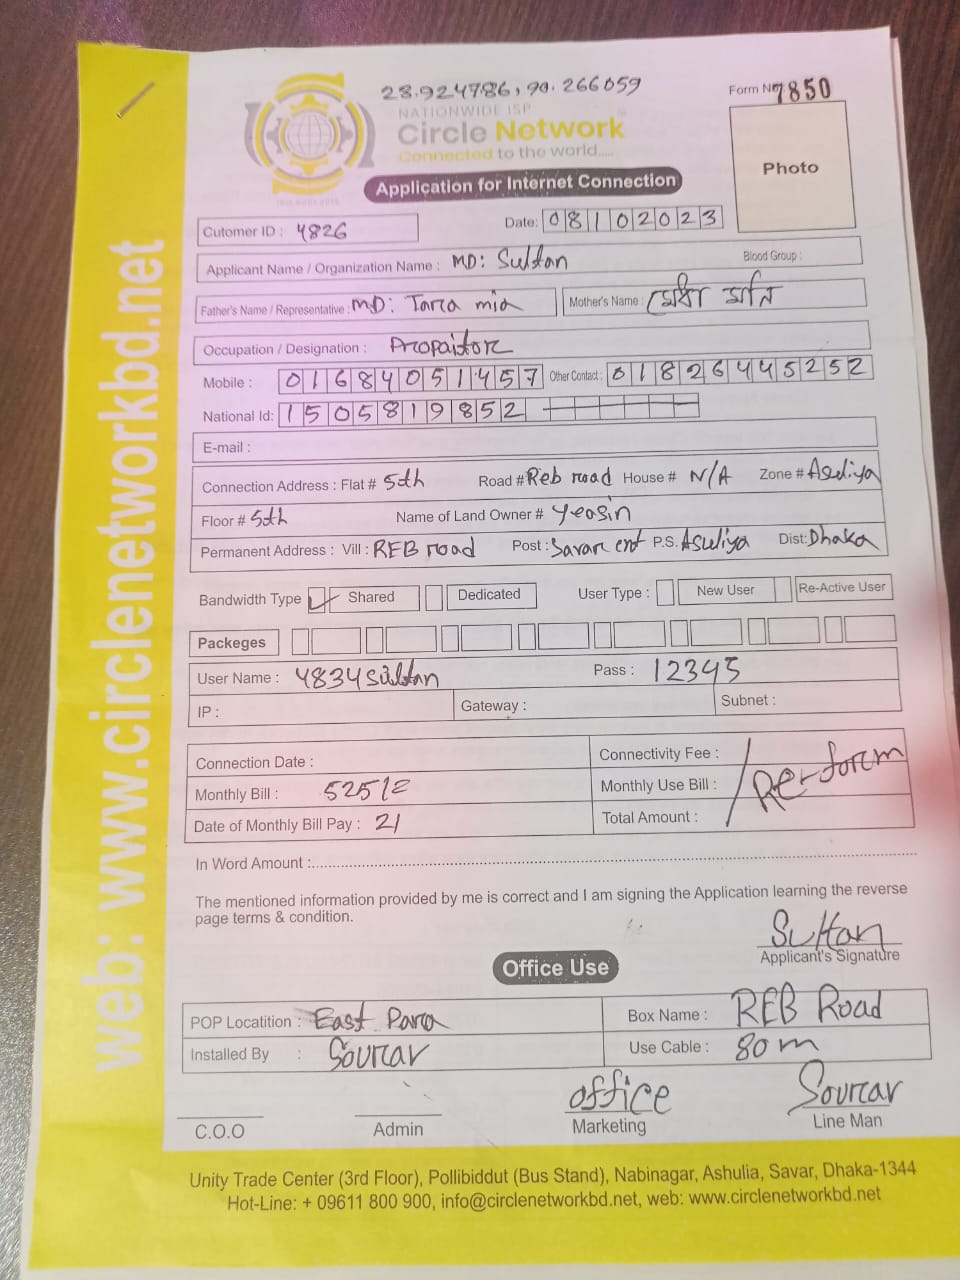 28.924786, 90.266059
Form No 7850
NATIONWIDE ISP
Circle Network
Connected to the world.....
Photo
Application for Internet Connection
Cutomer ID : 4826
Date: 08102023
Applicant Name / Organization Name : MD: Sultan
Blood Group :
Father's Name / Representative : MD: Tara mia
Mother's Name :
Occupation / Designation : Propaitor
Mobile : 01684051457 Other Contact : 01826445252
National Id: 1505819852
E-mail :
Connection Address : Flat # 5th Road # Reb road House # N/A Zone # Asuliya
Floor # 5th Name of Land Owner # Yeasin
Permanent Address : Vill : REB road Post : Savar cnt P.S. Asuliya Dist: Dhaka
Bandwidth Type Shared Dedicated User Type : New User Re-Active User
Packeges
User Name : 4834sultan Pass : 12345
IP : Gateway : Subnet :
Connection Date : Connectivity Fee :
Monthly Bill : 525/= Monthly Use Bill :
Date of Monthly Bill Pay : 21 Total Amount :
In Word Amount :
The mentioned information provided by me is correct and I am signing the Application learning the reverse
page terms & condition.
Sultan
Applicant's Signature
Office Use
POP Locatition : East Para Box Name : REB Road
Installed By : Sourav Use Cable : 80 m
office Sourav
C.O.O Admin Marketing Line Man
Unity Trade Center (3rd Floor), Pollibiddut (Bus Stand), Nabinagar, Ashulia, Savar, Dhaka-1344
Hot-Line: + 09611 800 900, info@circlenetworkbd.net, web: www.circlenetworkbd.net
web: www.circlenetworkbd.net